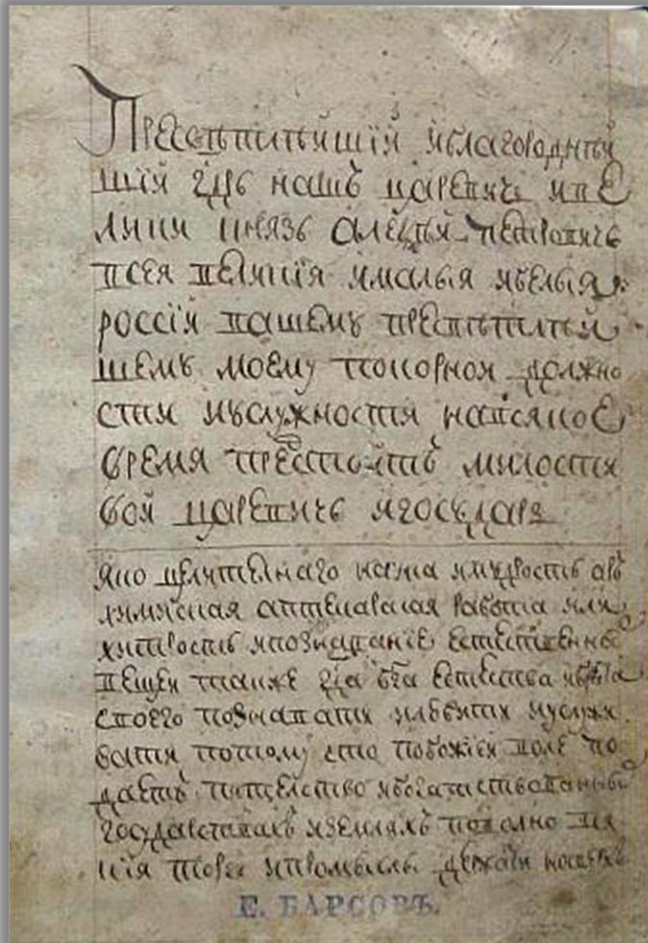 Пресвѣтлѣйшїй иблагороднѣй
шїй гдрь нашъ царевичь иве
ликїи князь алеѯѣй петровичь
всея великїя ималыя ибѣлыя
россїя вашему пресвѣтлѣй
шему моему покорной должно
сти ислужности навсякое
время милости
вой царевичь игосударь
яко наука имудрость
химиская аптекарская работа или
хитрость ипознаванїе естественны
вещей также гда бга естества
своего познавати илюбити ислужи
вати потому что побожїей воле по
даетъ
государствахъ иземляхъ
кїя торги ипромыслы
Е. БАРСОВЪ.